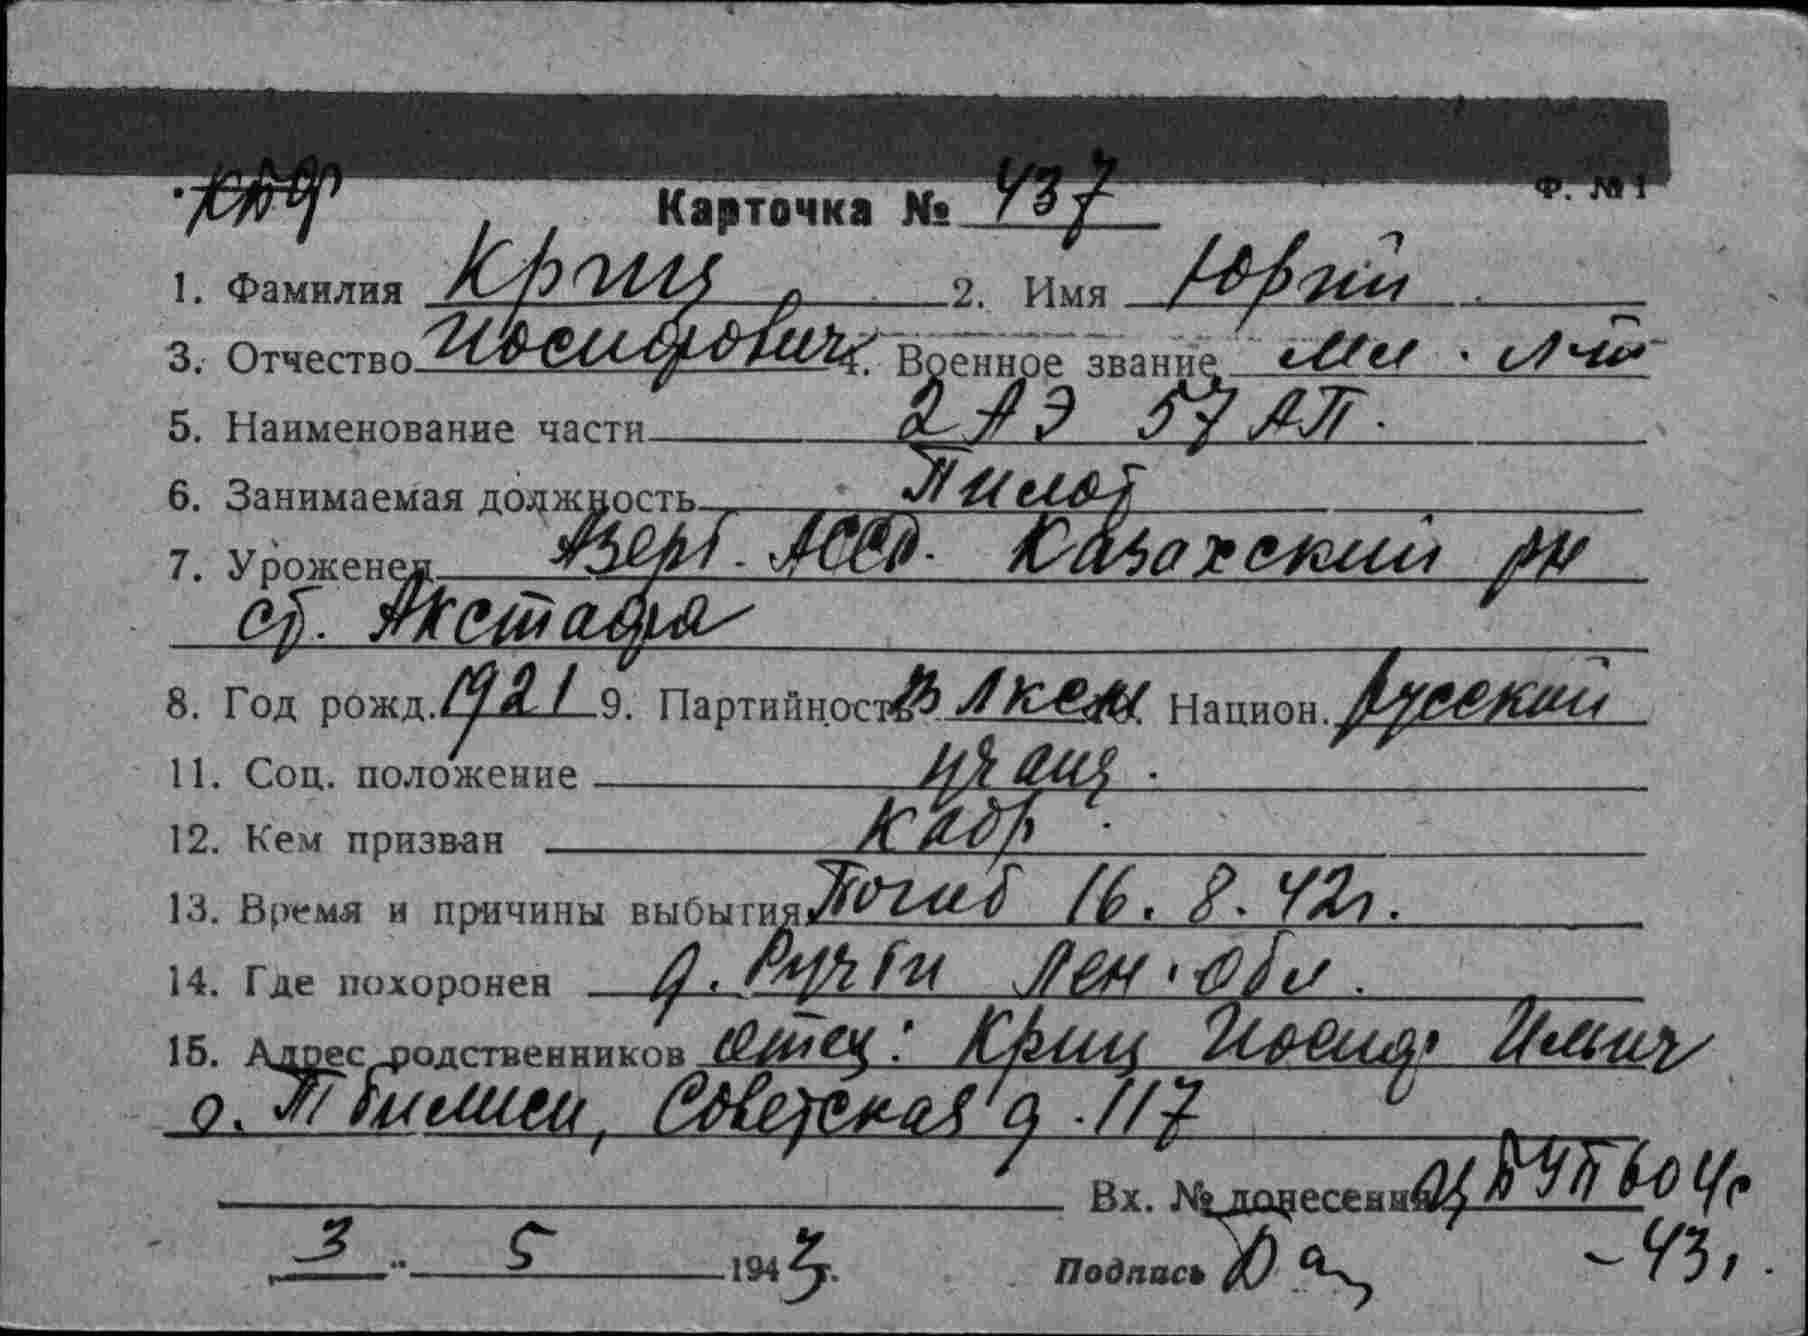 КБФ
Ф. №1
Карточка № 437
1. Фамилия Криц 2. Имя Юрий
3. Отчество Иосифович 4. Военное звание мл. л-т
5. Наименование части 2 АЭ 57 АП.
6. Занимаемая должность Пилот
7. Уроженец Азерб. АССР. Казахский р-н
ст. Акстафа
8. Год рожд. 1921 9. Партийность ВЛКСМ Национ. русский
11. Соц. положение учащ.
12. Кем призван Кадр.
13. Время и причины выбытия Погиб 16.8.42г.
14. Где похоронен д. Ручьи Лен. Обл.
15. Адрес родственников отец: Криц Иосиф Ильич
г. Тбилиси, Советская д. 117
Вх. № донесения 604с
3 " 5 1943г. Подпись -43г.